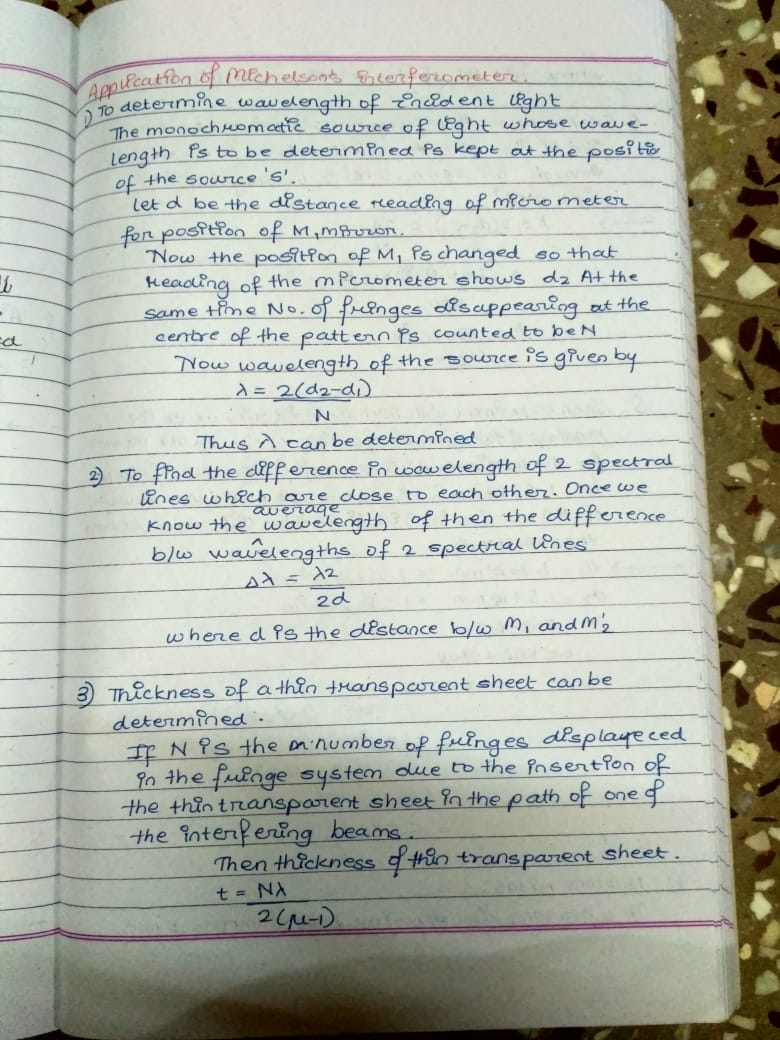 Application of Michelson's interferometer.
1) To determine wavelength of incident light
The monochromatic source of light whose wave-
length is to be determined is kept at the positio
of the source 'S'.
let d be the distance reading of micrometer
for position of M, mirror.
Now the position of M₁ is changed so that
reading of the micrometer shows d2 At the
same time No. of fringes disappearing at the
centre of the pattern is counted to be N
Now wavelength of the source is given by
λ = 2(d2-d1)
N
Thus λ can be determined
2) To find the difference in wavelength of 2 spectral
lines which are close to each other. Once we
know the average wavelength of then the difference
b/w wavelengths of 2 spectral lines
Δλ = λ2
2d
where d is the distance b/w M₁ and M₂'
3) Thickness of a thin transparent sheet can be
determined.
If N is the number of fringes displayeced
in the fringe system due to the insertion of
the thin transparent sheet in the path of one of
the interfering beams.
Then thickness of thin transparent sheet.
t = Nλ
2(μ-1)